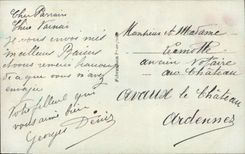 Cher Parrain
Chere Parraine
Je vous envoie mes
meilleurs Baisers
et vous remercie beaucoup
de ce que vous m'avez
envoyé
Votre filleul qui
vous aime bien
Georges Denis
Monsieur et Madame
ancien Notaire
au Château
Avaux le Château
Ardennes